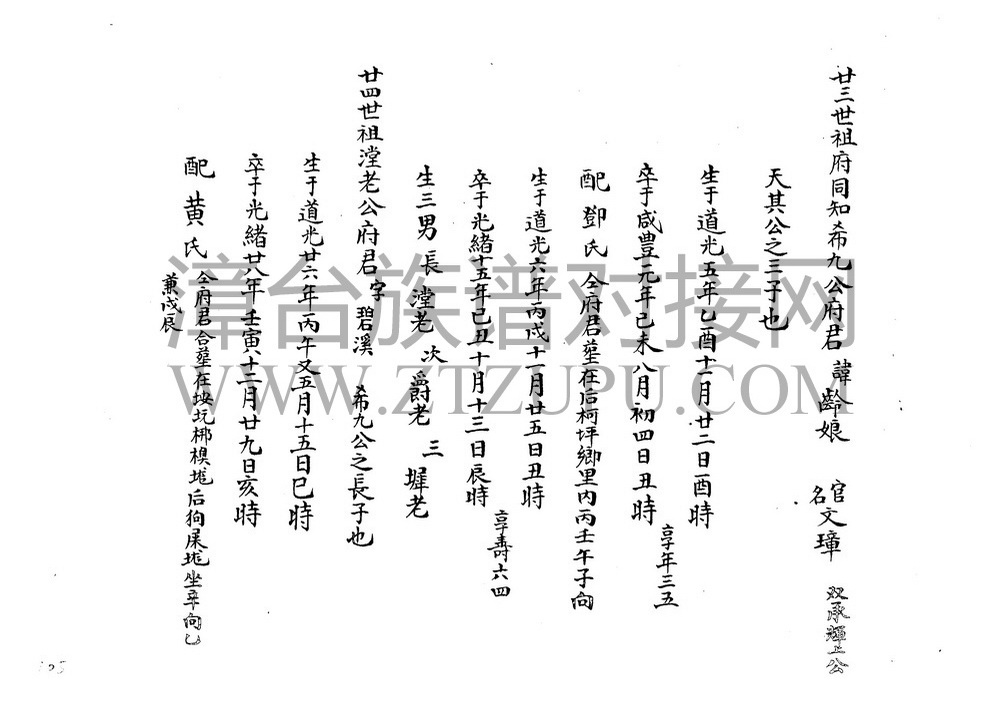 廿三世祖府同知希九公府君 諱齡娘 官名文璋 双承輝上公
天其公之三子也
生于道光五年乙酉十一月廿二日酉時
卒于咸豐元年己未八月初四日丑時 享年三五
配鄧氏 仝府君塟在后柯坪鄉里内丙壬午子向
生于道光六年丙戍十一月廿五日丑時
卒于光緒十五年己丑十月十三日辰時 享壽六四
生三男長瀅老 次爵老 三墀老
廿四世祖瀅老公府君字碧溪 希九公之長子也
生于道光廿六年丙午又五月十五日巳時
卒于光緒廿八年壬寅十二月廿九日亥時
配黄氏 仝府君合塟在坂坑梛模垅后狗屎垅坐辛向乙
兼戍辰
漳台族谱对接网
WWW.ZTZUPU.COM
105